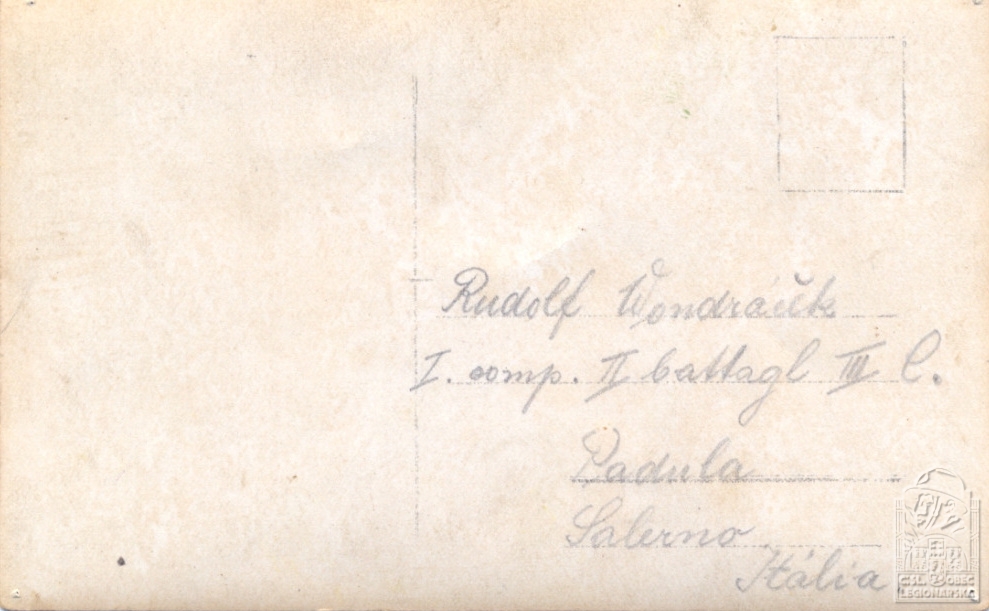 Rudolf Wondráček
I. comp. II battagl III C.
Padula
Salerno
Itália
ČSL. OBEC
LEGIONÁŘSKÁ